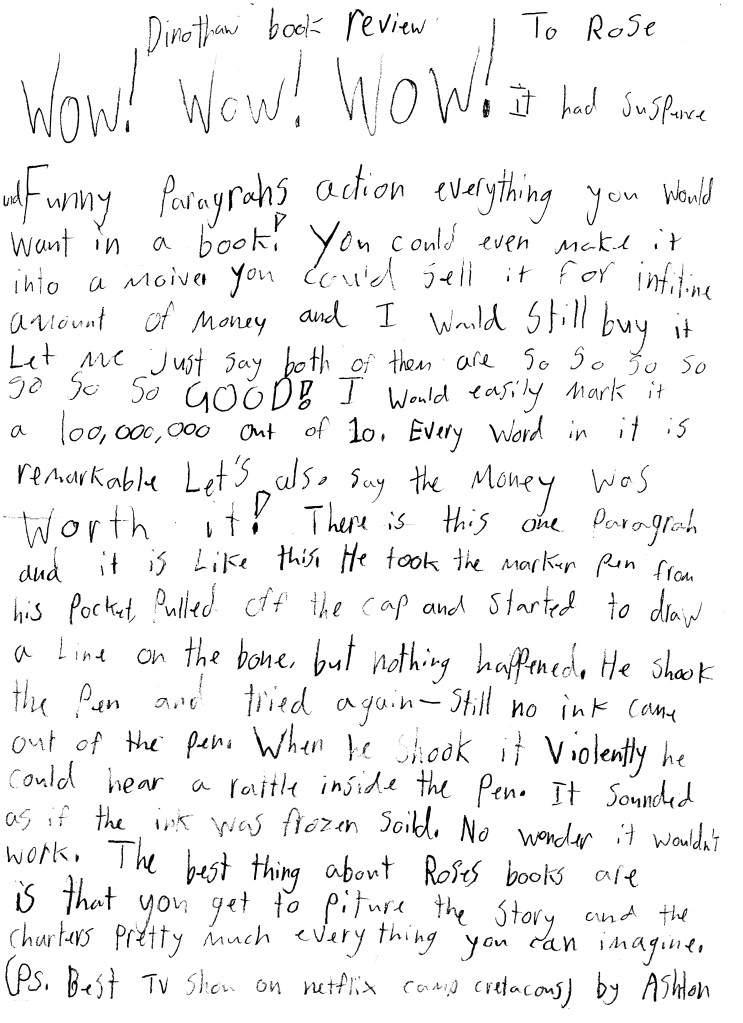 Dinothaw book review To Rose
WOW! WOW! WOW! It had suspence
and Funny Paragrahs action everything you would
want in a book! You could even make it
into a moive. you could sell it for infitine
amount of money and I would still buy it
Let me just say both of them are So So So So
so So So GOOD! I would easily mark it
a 100,000,000 out of 10. Every word in it is
remarkable Let's also say the money was
worth it! There is this one Paragrah
and it is Like this. He took the marker pen from
his Pocket, Pulled off the cap and started to draw
a Line on the bone, but nothing happened. He shook
the Pen and tried again – Still no ink came
out of the pen. When he shook it Violently he
could hear a rattle inside the Pen. It Sounded
as if the ink was frozen Soild. No wonder it wouldn't
work. The best thing about Roses books are
is that you get to Piture the Story and the
charters Pretty much everything you can imagine.
(Ps. Best TV Show on netflix camp cretacous) by Ashton